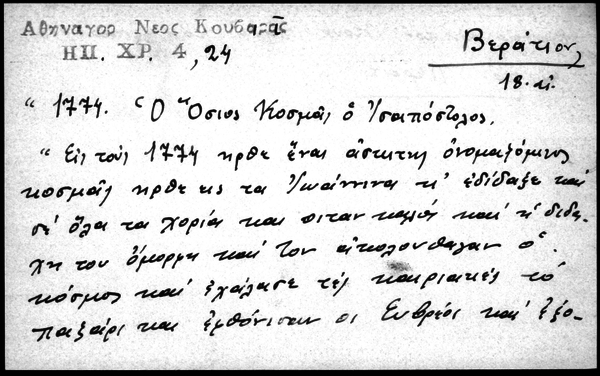 Αθηναγορ Νεος Κουβαρᾶς
ΗΠ. ΧΡ. 4, 24
Βεράτιον
18. αἰ.
" 1774. Ὁ Ὅσιος Κοσμᾶς ὁ Ἰσαπόστολος.
" Εἰς τοὺς 1774 ηρθε ἕνας ἀσκητης ὀνομαζόμενος
κοσμᾶς ηρθε εις τα Ἰωάννινα κ' ἐδίδαξε καὶ
σε ὅλα τα χορία και ειταν καλὸς καὶ ἡ διδα-
χη του ὄμορφη καὶ τον ἀκολουθαγαν ὁ
κόσμος καὶ ἐχάλασε τὲς καιριακὲς τὸ
παζάρι και ἐμθόνισαν οι Ευβρέοι καὶ ἐξο-